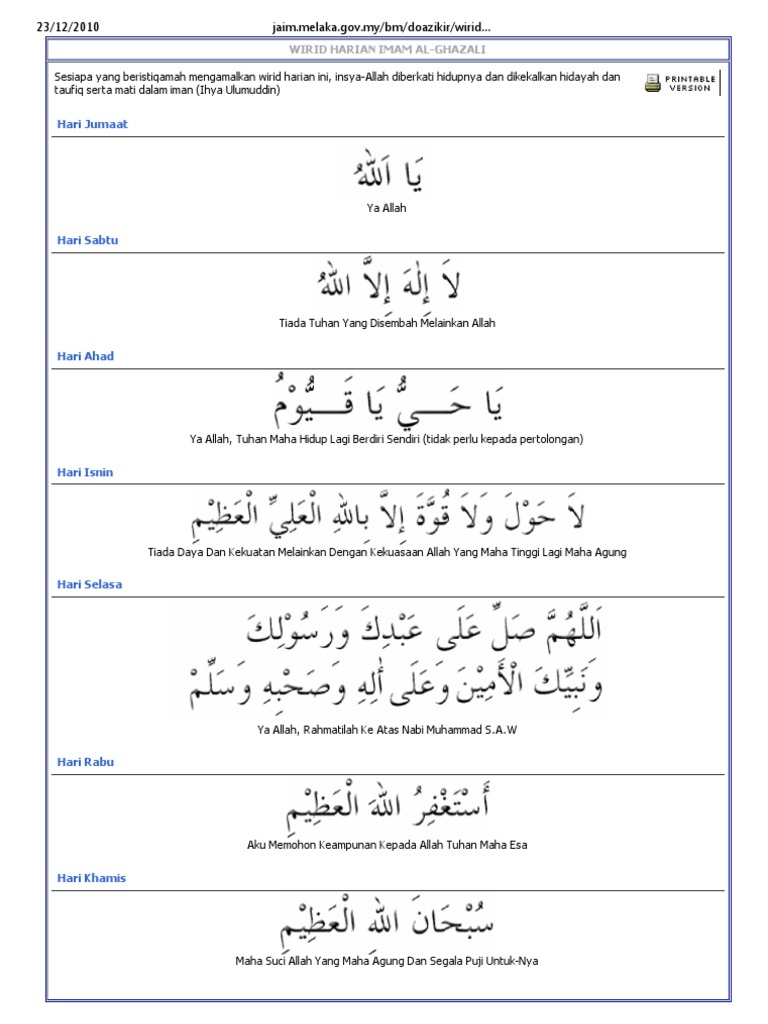 23/12/2010 jaim.melaka.gov.my/bm/doazikir/wirid...
WIRID HARIAN IMAM AL-GHAZALI
Sesiapa yang beristiqamah mengamalkan wirid harian ini, insya-Allah diberkati hidupnya dan dikekalkan hidayah dan
taufiq serta mati dalam iman (Ihya Ulumuddin)
PRINTABLE
VERSION
Hari Jumaat
يَا اَللّٰهُ
Ya Allah
Hari Sabtu
لاَ إِلٰهَ إِلاَّ اللّٰهُ
Tiada Tuhan Yang Disembah Melainkan Allah
Hari Ahad
يَا حَــــيُّ يَا قَــــيُّوْمُ
Ya Allah, Tuhan Maha Hidup Lagi Berdiri Sendiri (tidak perlu kepada pertolongan)
Hari Isnin
لاَ حَوْلَ وَلاَ قُوَّةَ إِلاَّ بِاللّٰهِ الْعَلِيِّ الْعَظِيْمِ
Tiada Daya Dan Kekuatan Melainkan Dengan Kekuasaan Allah Yang Maha Tinggi Lagi Maha Agung
Hari Selasa
اَللَّهُمَّ صَلِّ عَلَى عَبْدِكَ وَرَسُوْلِكَ
وَنَبِيِّكَ الْأَمِيْنَ وَعَلَى أٰلِهِ وَصَحْبِهِ وَسَلِّمْ
Ya Allah, Rahmatilah Ke Atas Nabi Muhammad S.A.W
Hari Rabu
أَسْتَغْفِرُ اللّٰهَ الْعَظِيْمِ
Aku Memohon Keampunan Kepada Allah Tuhan Maha Esa
Hari Khamis
سُبْحَانَ اللّٰهِ الْعَظِيْمِ
Maha Suci Allah Yang Maha Agung Dan Segala Puji Untuk-Nya